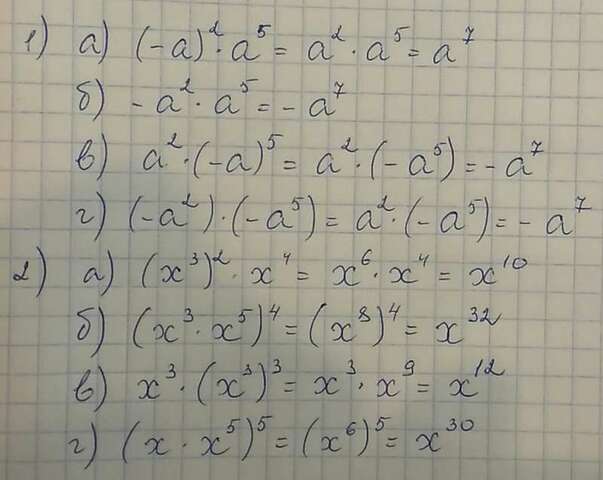 1) а) (-a)²·a⁵ = a²·a⁵ = a⁷
б) -a²·a⁵ = -a⁷
в) a²·(-a)⁵ = a²·(-a⁵) = -a⁷
г) (-a²)·(-a⁵) = a²·(-a⁵) = -a⁷
2) а) (x³)²·x⁴ = x⁶·x⁴ = x¹⁰
б) (x³·x⁵)⁴ = (x⁸)⁴ = x³²
в) x³·(x³)³ = x³·x⁹ = x¹²
г) (x·x⁵)⁵ = (x⁶)⁵ = x³⁰